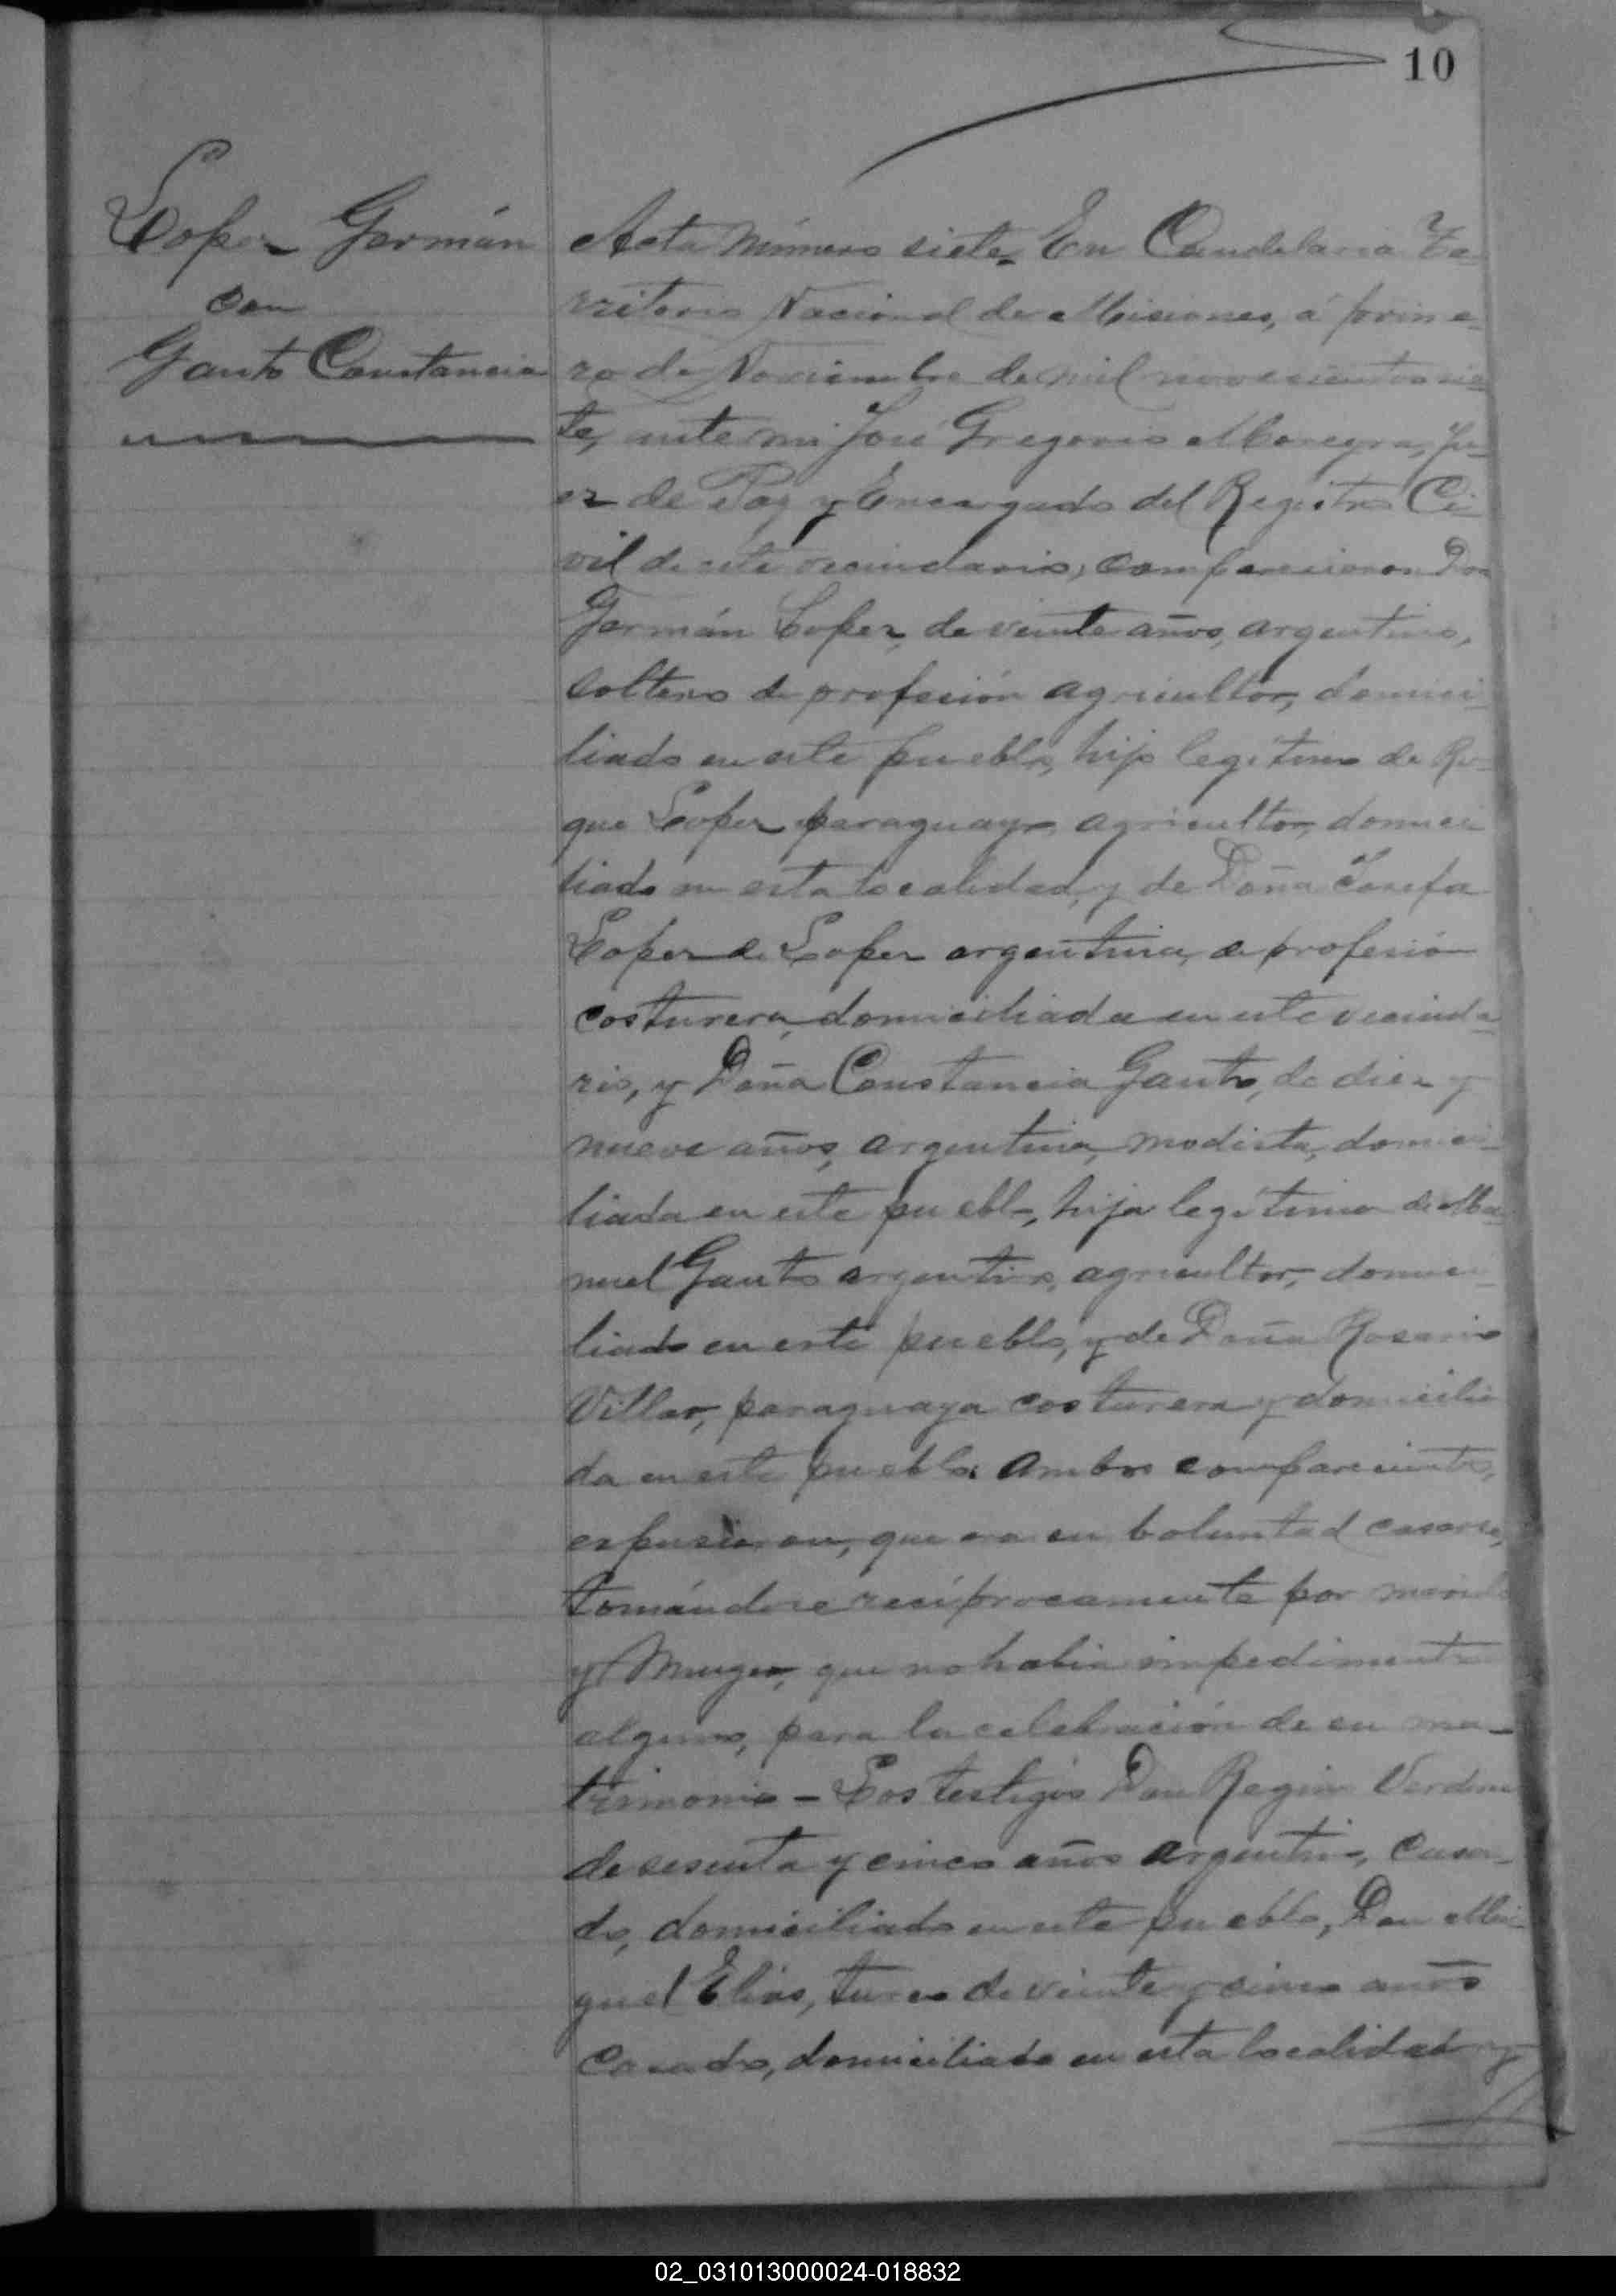 10
Lopez Germán
con
Gauto Constancia
Acta Número siete. En Candelaria Te-
rritorio Nacional de Misiones, á prime-
ro de Noviembre de mil novecientos sie-
te, ante mi José Gregorio Ju-
ez de Paz y Encargado del Registro Ci-
vil de este vecindario, comparecieron Don
Germán Lopez, de veinte años, argentino,
soltero de profesión agricultor, domici-
liado en este pueblo, hijo legítimo de Ro-
que Lopez paraguayo, agricultor, domici
liado en esta localidad, y de Doña Josefa
Lopez de Lopez argentina, de profesión
costurera, domiciliada en este vecinda-
rio, y Doña Constancia Gauto, de diez y
nueve años, argentina, modista, domici-
liada en este pueblo, hija legítima de Ma-
nuel Gauto argentino, agricultor, domici-
liado en este pueblo, y de Doña Rosario
Villar, paraguaya costurera y domicilia
da en este pueblo. Ambos comparecientes,
espusieron, que era su boluntad casarse,
tomándose recíprocamente por marido
y Muger, que no habia impedimento
alguno, para la celebración de su ma-
trimonio - Los testigos Don Regino Verdun
de sesenta y cinco años argentino, casa-
do, domiciliado en este pueblo, Don Mi-
guel Elias, turco de veinte y cinco años
Casado, domiciliado en esta localidad y
02_031013000024-018832